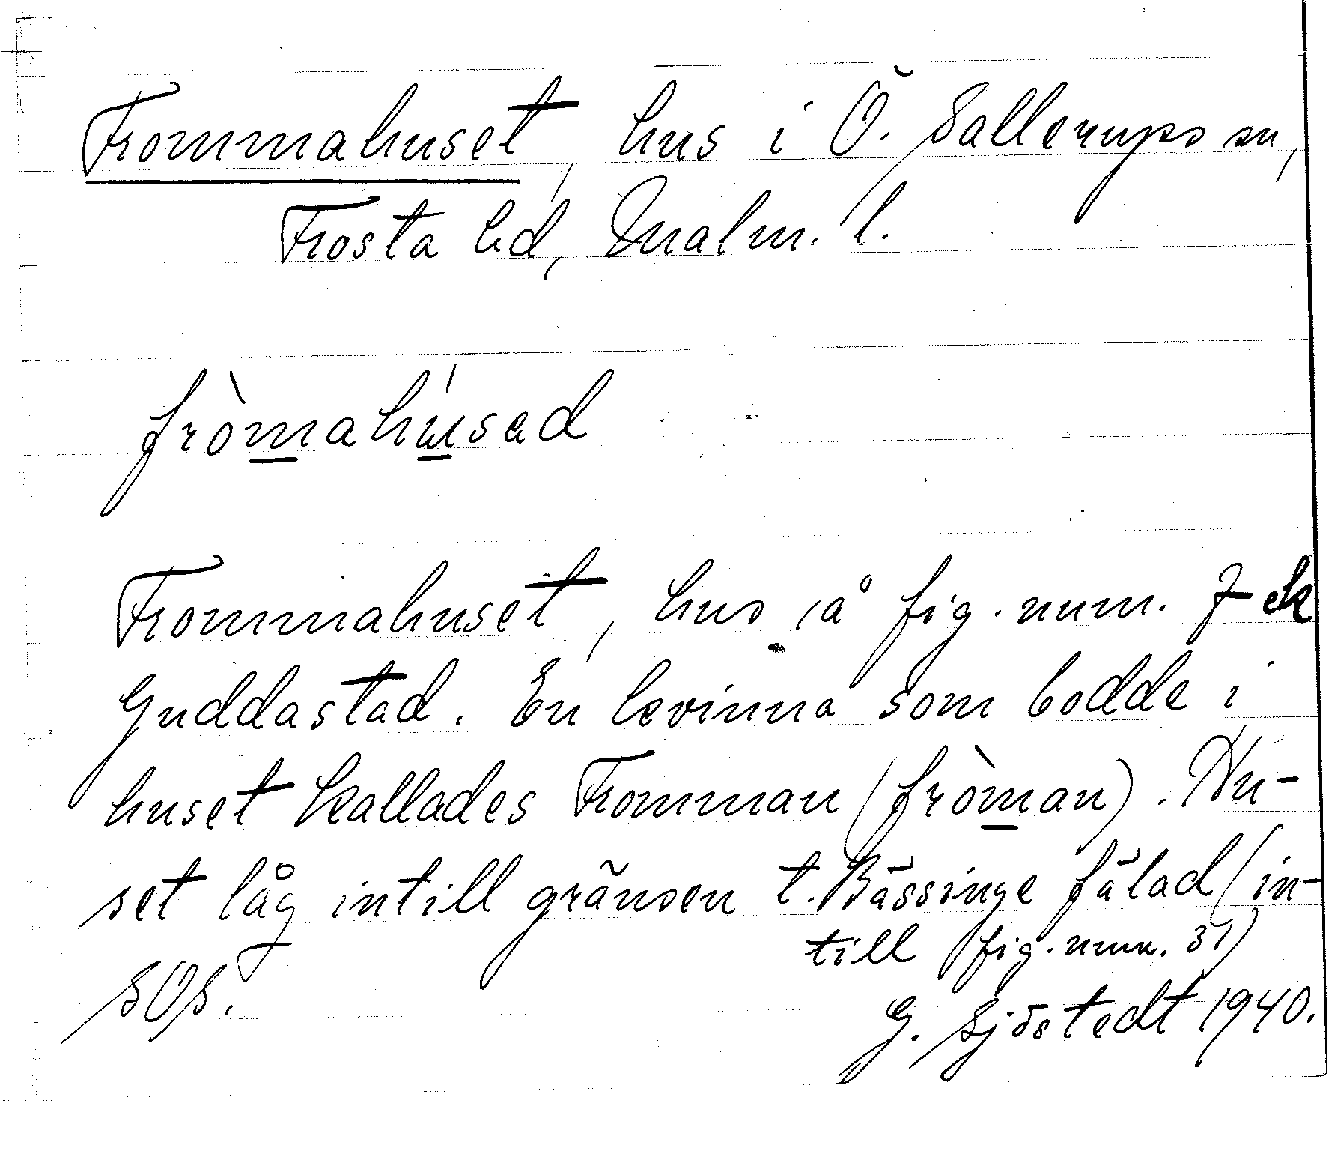 Frommahuset, hus i Ö. Sallerups sn,
Frosta hd, Malm. l.
fròmahúsad
Frommahuset, hus å fig. num. 7 ek
Guddastad. En kvinna som bodde i
huset kallades Fromman (fròman). Hu-
set låg intill gränsen t. Bässinge fälad (in-
till fig. num. 31)
SOS.
G. Sjöstedt 1940.